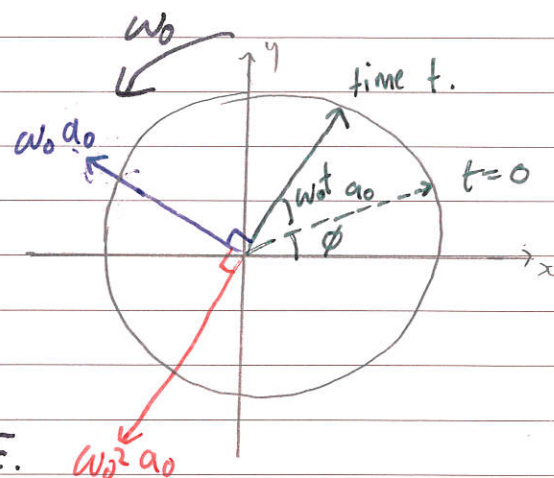 ω₀
y
time t.
ω₀ a₀
t=0
ω₀t
a₀
φ
x
E.
ω₀² a₀